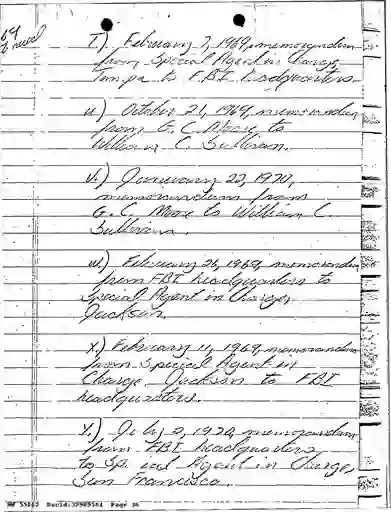 T.) February 7, 1969, memorandum
from Special Agent in Charge,
Tampa to FBI headquarters
u.) October 21, 1969, memorandum
from G. C. Moore to
William C. Sullivan.
v.) January 22, 1970,
memorandum from
G. C. Moore to William C.
Sullivan.
w.) February 26, 1969, memorandum
from FBI headquarters to
Special Agent in Charge,
Jackson.
X.) February 11, 1969, memorandum
from Special Agent in
Charge, Jackson to FBI
headquarters.
Y.) July 2, 1970, memorandum
from FBI headquarters
to Special Agent in Charge,
San Francisco.
Page 36